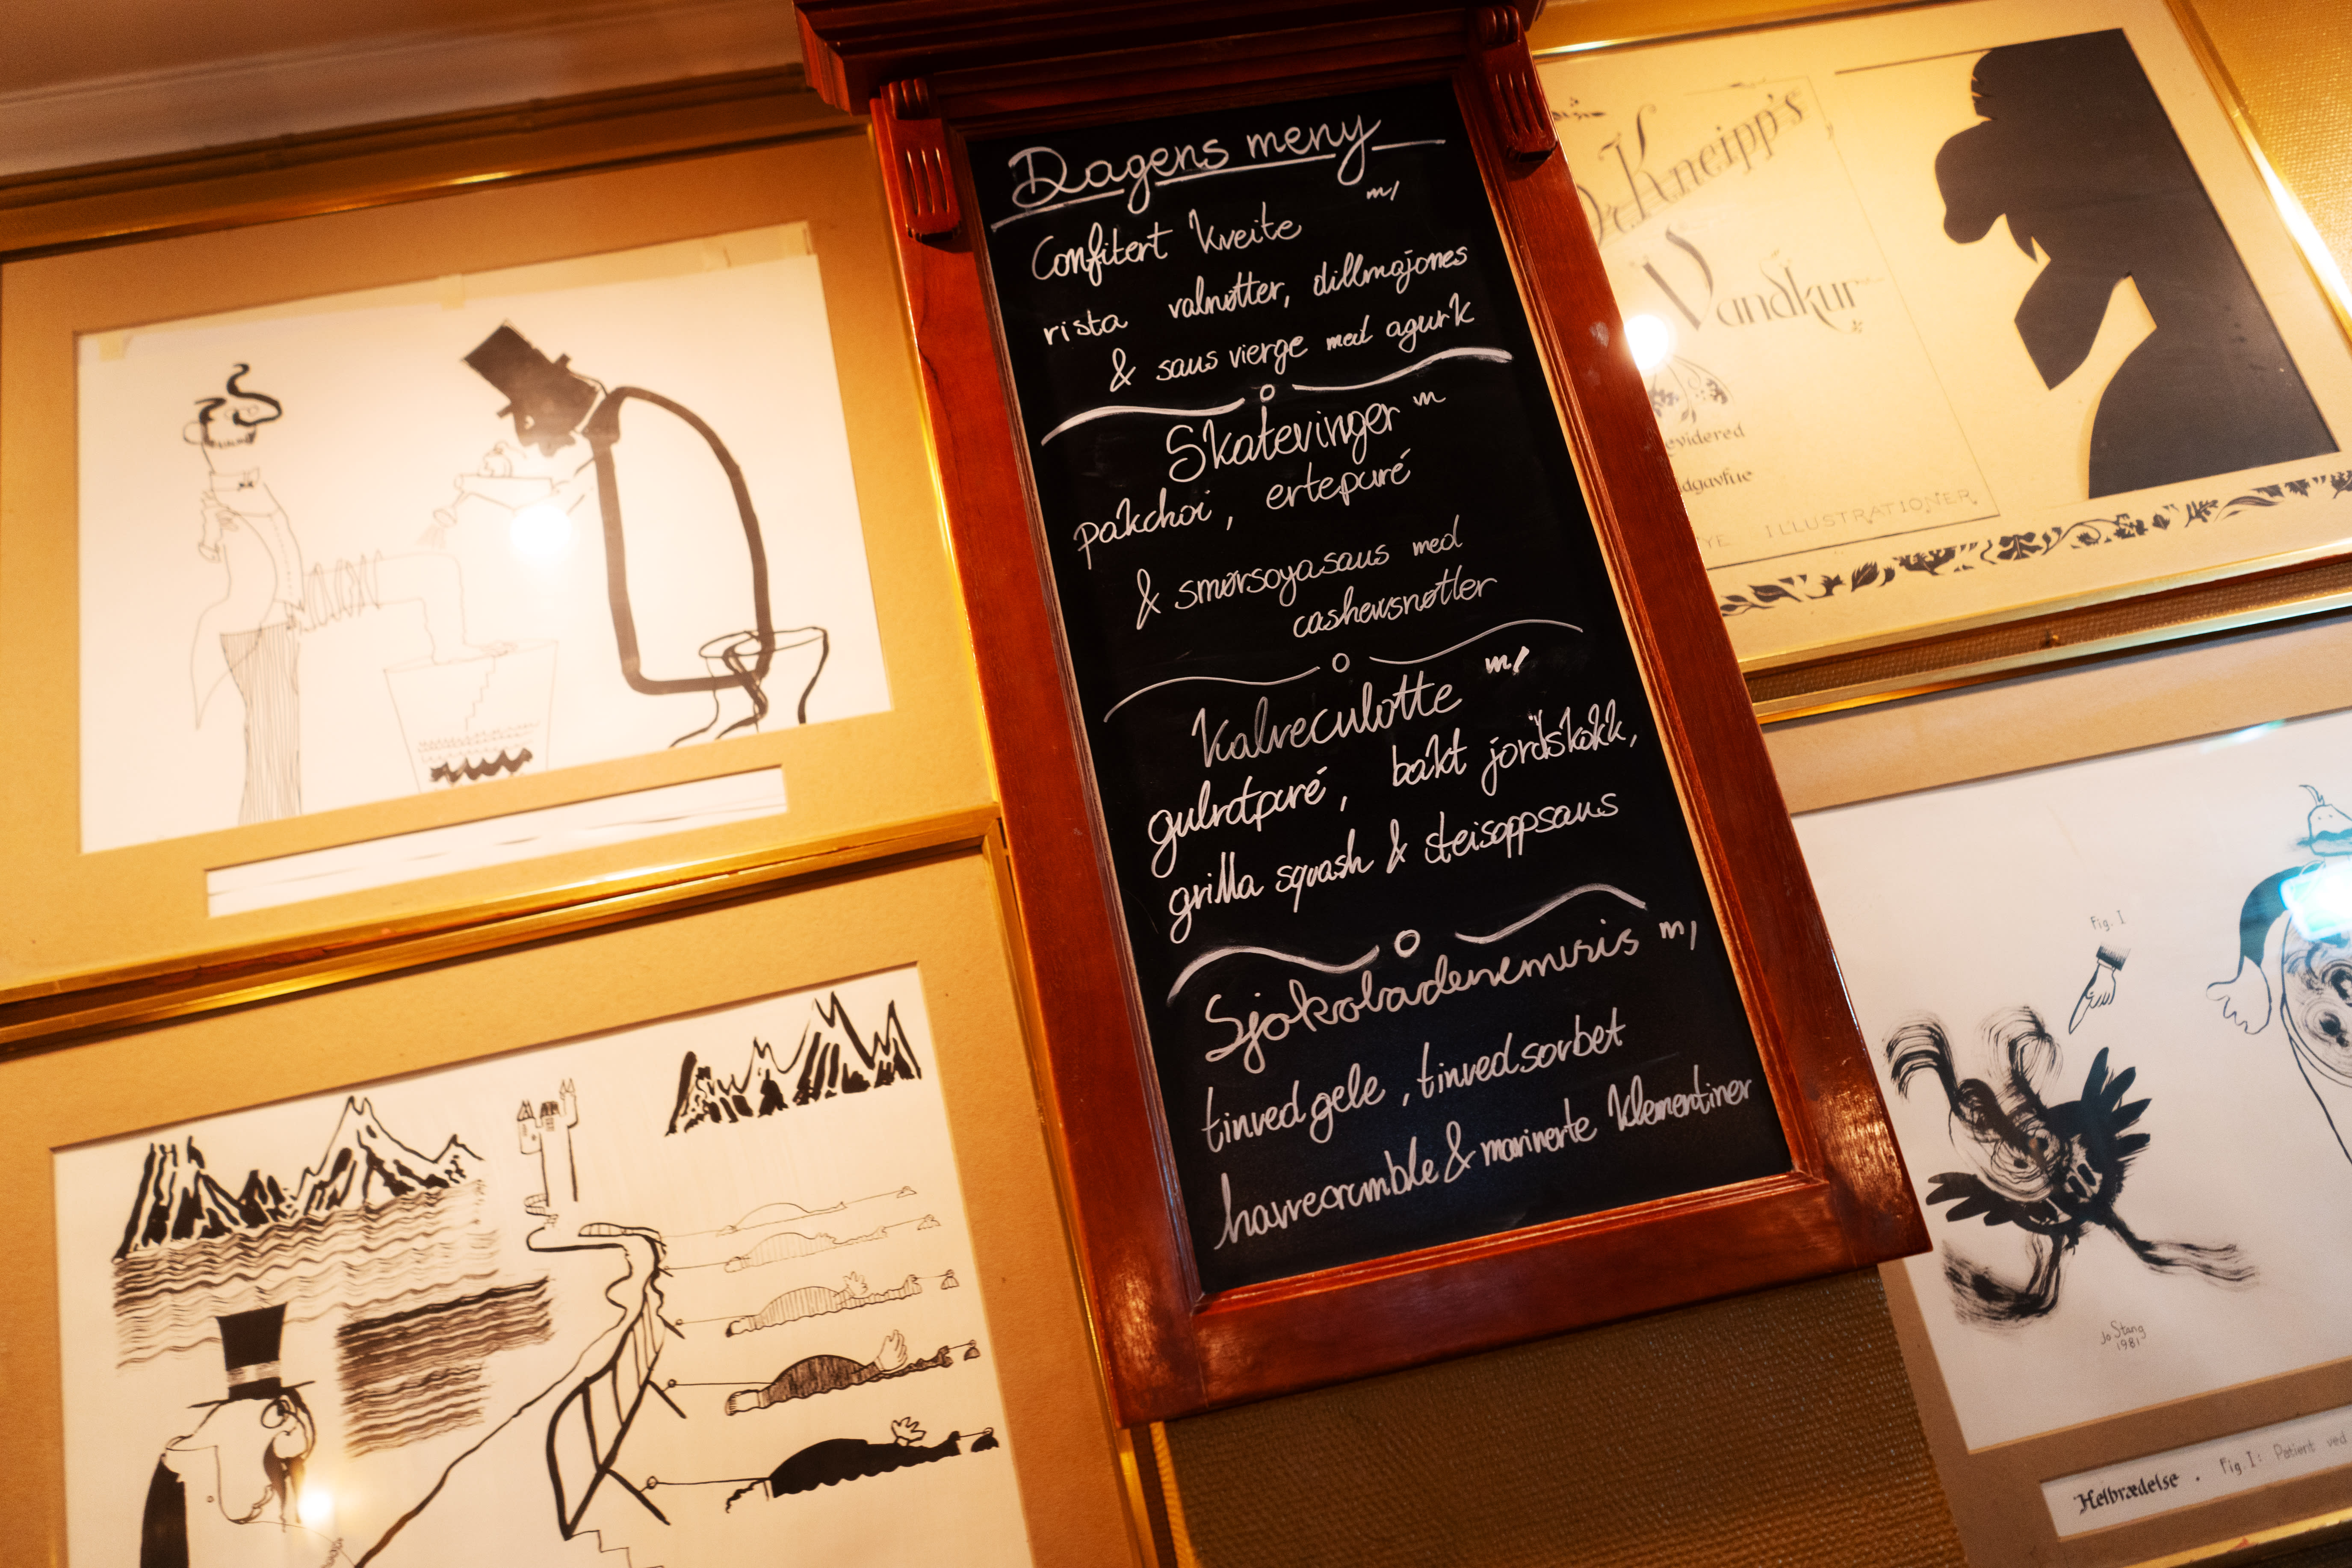 Dagens meny
Confitert kveite m/
rista valnøtter, dillmajones
& saus vierge med agurk
Skatevinger m
pakchoi, ertepuré
& smørsoyasaus med
cashewsnøtter
Kalveculotte m/
gulrotpuré, bakt jordskokk,
grilla squash & steisoppsaus
Sjokolademuris m/
tinved gele, tinved sorbet
havrecrumble & marinerte klementiner
Dr Kneipp's
Vandkur
evidered
dgavfue
YE ILLUSTRATIONER
Fig. I
Jo Stang
1981
Helbrædelse . Fig. I: Patient ved